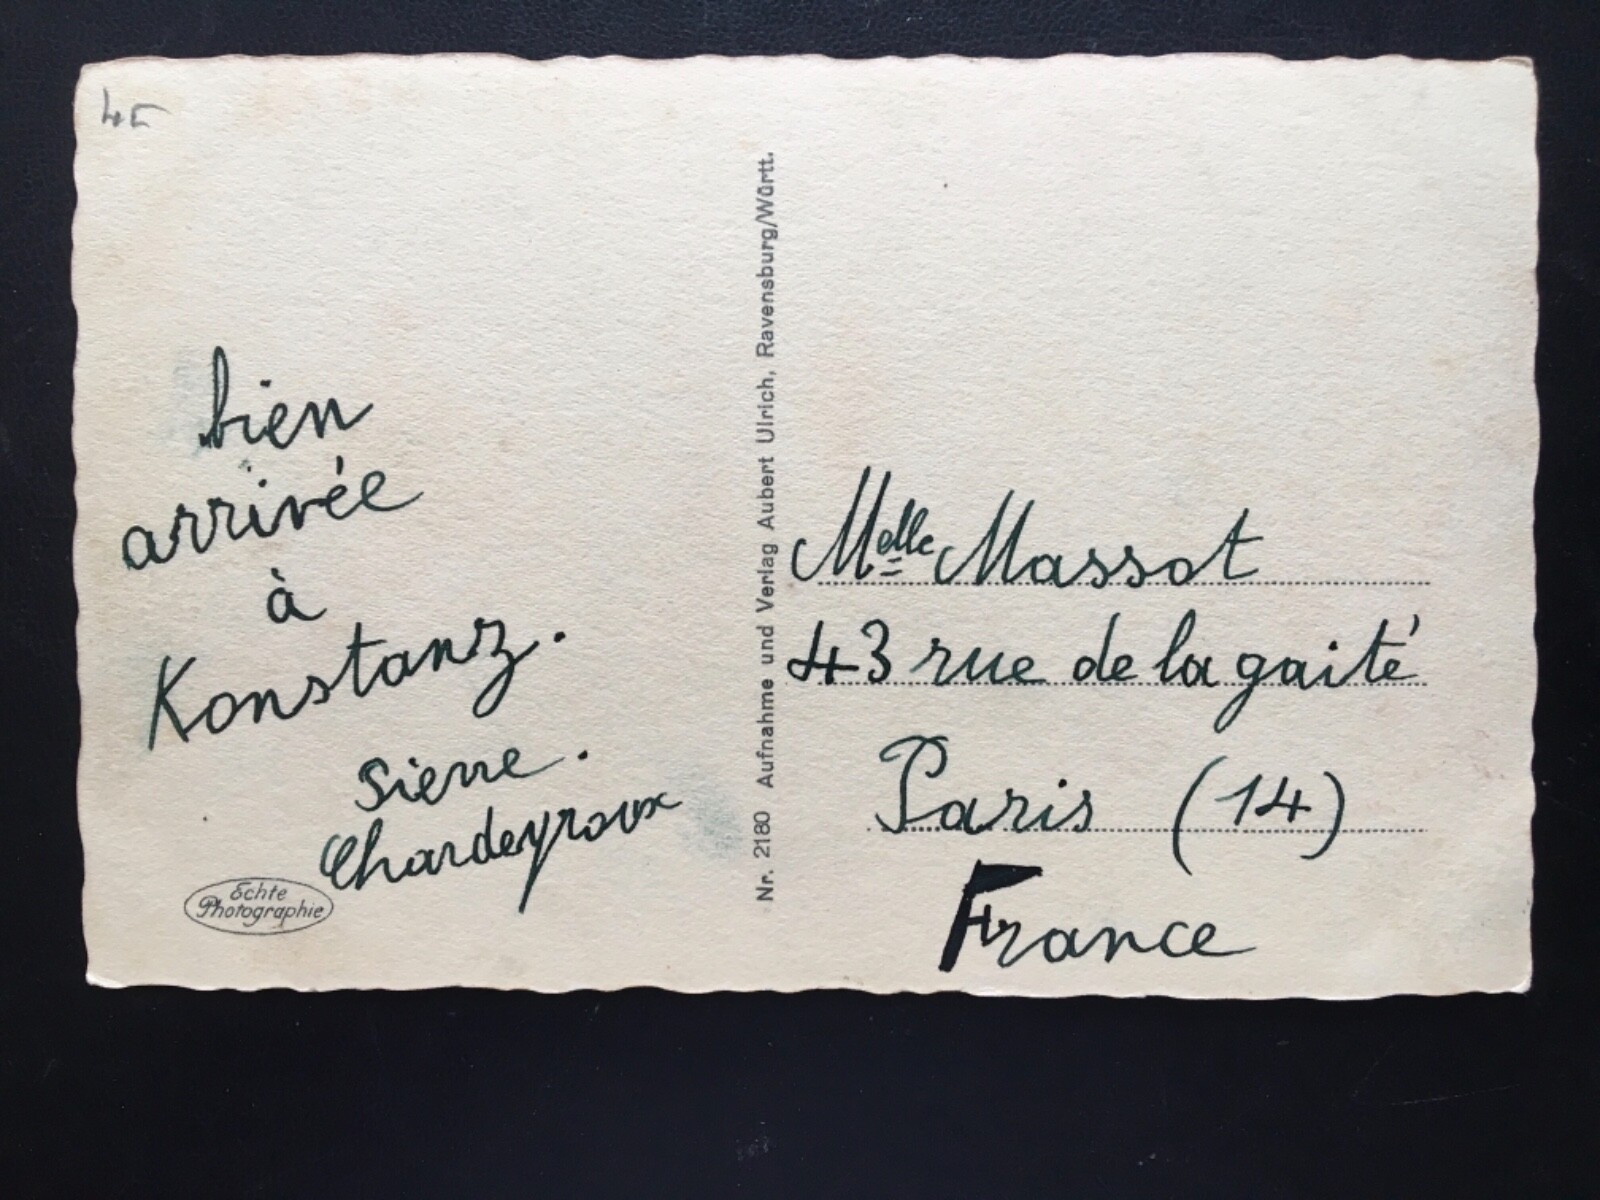 bien
arrivée
à
Konstanz.
Sierre.
Chardeyroux
Echte
Photographie
Nr. 2180 Aufnahme und Verlag Aubert Ulrich, Ravensburg/Württ.
Melle Massot
43 rue de la gaité
Paris (14)
France